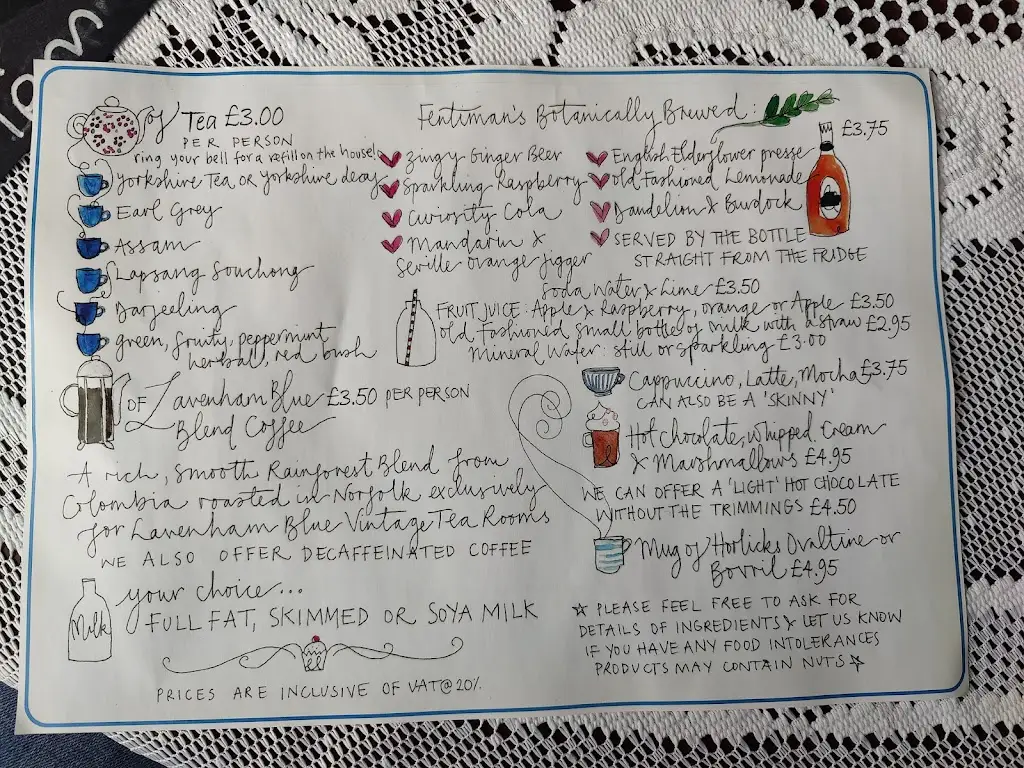 of Tea £3.00
PER PERSON
ring your bell for a refill on the house!
Yorkshire Tea or Yorkshire decaf
Earl Grey
Assam
Lapsang Souchong
Darjeeling
green, fruity, peppermint
herbal, red bush
OF Lavenham Blue £3.50 PER PERSON
Blend Coffee
A rich, smooth Rainforest Blend from
Colombia roasted in Norfolk exclusively
for Lavenham Blue Vintage Tea Rooms
WE ALSO OFFER DECAFFEINATED COFFEE
Milk
your choice...
FULL FAT, SKIMMED OR SOYA MILK
PRICES ARE INCLUSIVE OF VAT@20%.
Fentiman's Botanically Brewed:
£3.75
Zingy Ginger Beer
Sparkling Raspberry
Curiosity Cola
Mandarin &
Seville orange Jigger
English Elderflower presse
old Fashioned Lemonade
Dandelion & Burdock
SERVED BY THE BOTTLE
STRAIGHT FROM THE FRIDGE
Soda Water & Lime £3.50
FRUIT JUICE: Apple & Raspberry, orange or Apple £3.50
old Fashioned small bottle of milk with a straw £2.95
Mineral Water: still or sparkling £3.00
Cappuccino, Latte, Mocha £3.75
CAN ALSO BE A 'SKINNY'
Hot chocolate, whipped Cream
& Marshmallows £4.95
WE CAN OFFER A 'LIGHT' HOT CHOCOLATE
WITHOUT THE TRIMMINGS £4.50
Mug of Horlicks Ovaltine or
Bovril £4.95
☆ PLEASE FEEL FREE TO ASK FOR
DETAILS OF INGREDIENTS & LET US KNOW
IF YOU HAVE ANY FOOD INTOLERANCES
PRODUCTS MAY CONTAIN NUTS ☆